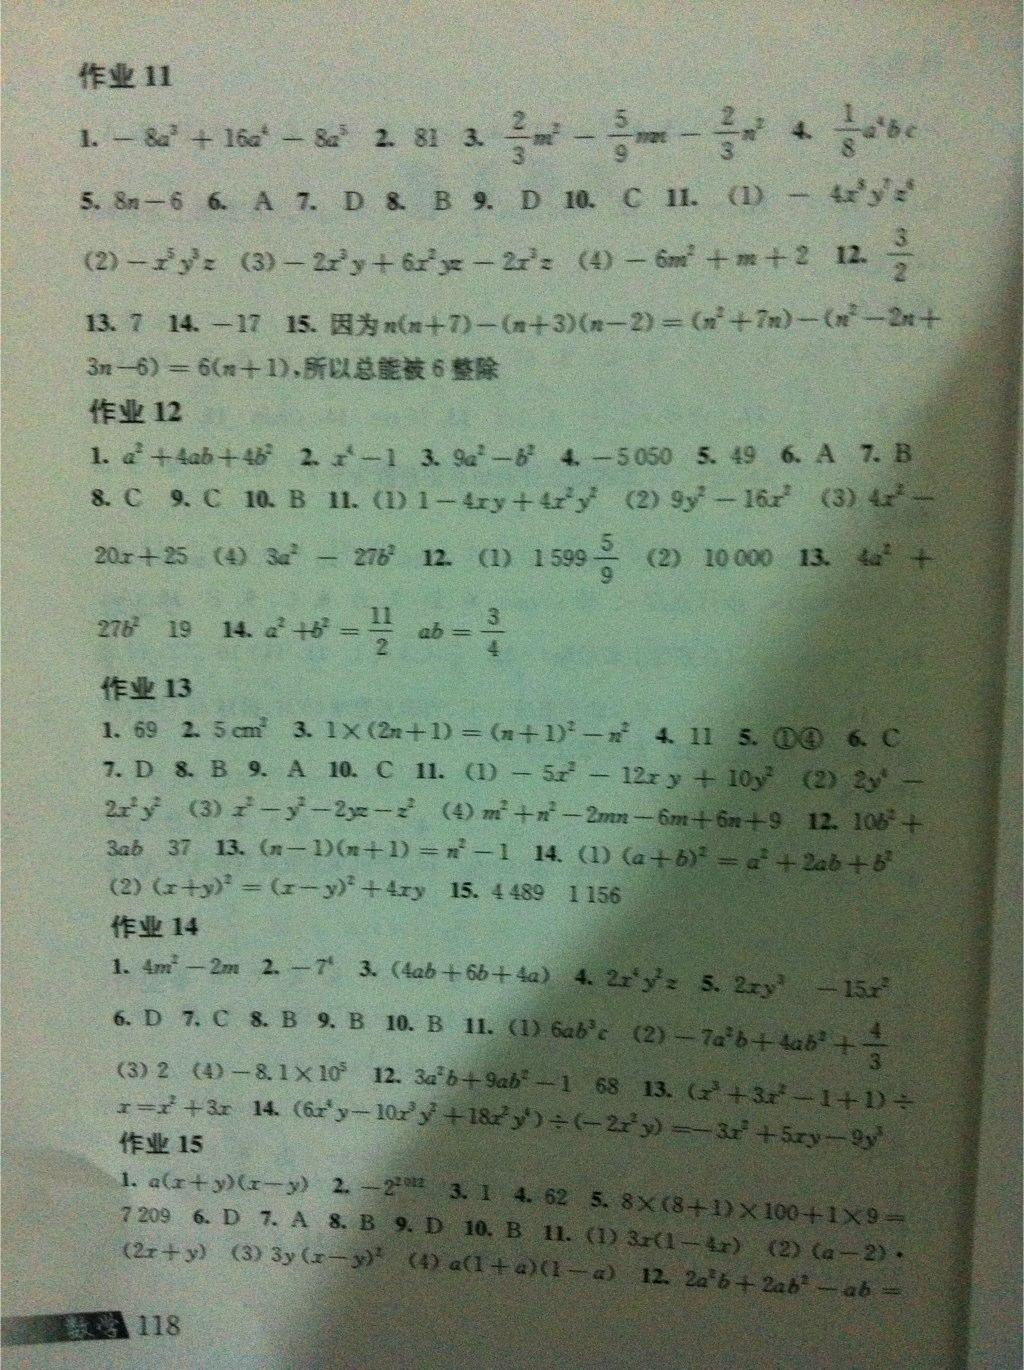 作业 11
1. －8a³＋16a⁴－8a⁵ 2. 81 3. 2/3 m²－5/9 mn－2/3 n² 4. 1/8 a⁴bc
5. 8n－6 6. A 7. D 8. B 9. D 10. C 11. (1) －4x⁸y⁷z⁶
(2)－x⁵y³z (3)－2x³y＋6x²yz－2x³z (4)－6m²＋m＋2 12. 3/2
13. 7 14. －17 15. 因为n(n＋7)－(n＋3)(n－2)＝(n²＋7n)－(n²－2n＋
3n－6)＝6(n＋1),所以总能被 6 整除
作业 12
1. a²＋4ab＋4b² 2. x⁴－1 3. 9a²－b² 4. －5 050 5. 49 6. A 7. B
8. C 9. C 10. B 11. (1) 1－4xy＋4x²y² (2) 9y²－16x² (3) 4x²－
20x＋25 (4) 3a²－27b² 12. (1) 1 599 5/9 (2) 10 000 13. 4a²＋
27b² 19 14. a²＋b²＝11/2 ab＝3/4
作业 13
1. 69 2. 5 cm² 3. 1×(2n＋1)＝(n＋1)²－n² 4. 11 5. ①④ 6. C
7. D 8. B 9. A 10. C 11. (1)－5x²－12xy＋10y² (2) 2y⁴－
2x²y² (3) x²－y²－2yz－z² (4) m²＋n²－2mn－6m＋6n＋9 12. 10b²＋
3ab 37 13. (n－1)(n＋1)＝n²－1 14. (1) (a＋b)²＝a²＋2ab＋b²
(2) (x＋y)²＝(x－y)²＋4xy 15. 4 489 1 156
作业 14
1. 4m²－2m 2. －7⁴ 3. (4ab＋6b＋4a) 4. 2x⁴y²z 5. 2xy³ －15x²
6. D 7. C 8. B 9. B 10. B 11. (1) 6ab³c (2)－7a²b＋4ab²＋4/3
(3) 2 (4)－8.1×10⁵ 12. 3a²b＋9ab²－1 68 13. (x³＋3x²－1＋1)÷
x＝x²＋3x 14. (6x⁴y－10x³y²＋18x²y⁴)÷(－2x²y)＝－3x²＋5xy－9y³
作业 15
1. a(x＋y)(x－y) 2. －2²⁰¹² 3. 1 4. 62 5. 8×(8＋1)×100＋1×9＝
7 209 6. D 7. A 8. B 9. D 10. B 11. (1) 3x(1－4x) (2) (a－2)·
(2x＋y) (3) 3y(x－y)² (4) a(1＋a)(1－a) 12. 2a²b＋2ab²－ab＝
数学 118